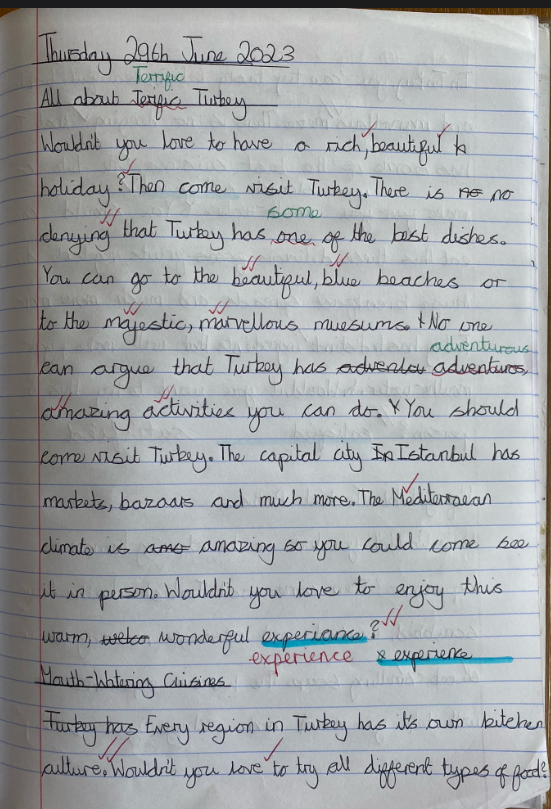 Thursday 29th June 2023
Terrific
All about Terific Turkey
Wouldn't you love to have a rich, beautiful h
holiday? Then come visit Turkey. There is no no
some
denying that Turkey has one of the best dishes.
You can go to the beautiful, blue beaches or
to the majestic, marvellous muesums. No one
adventurous
can argue that Turkey has adventu adventuros,
amazing activities you can do. You should
come visit Turkey. The capital city In Istanbul has
markets, bazaars and much more. The Mediterraean
climate is ama amazing so you could come see
it in person. Wouldn't you love to enjoy this
warm, welco wonderful experiance?
experience experience
Mouth-Watering Cuisines
Turkey has Every region in Turkey has it's own kitchen
culture. Wouldn't you love to try all different types of food?